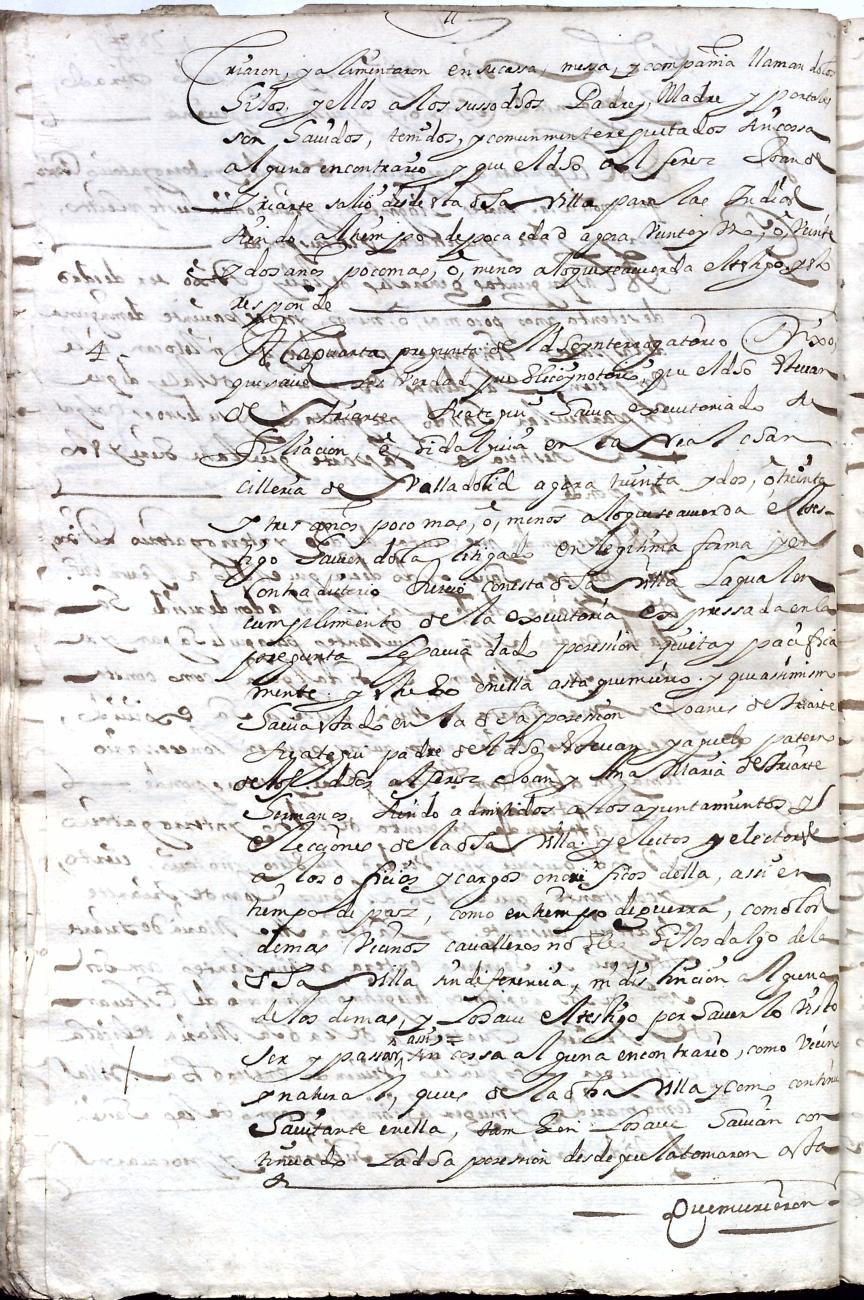 criaron, y alimentaron en su cassa, messa, y compañia llamandolos
hijos, y ellos a los sussodhos Padre, y Madre y por tales
son hauidos, tenidos, y comunmente reputados sin cossa
alguna en contrario, y que el dho alferez Joan de
Yriarte salio desde esta dha villa para las Indias
siendo al tiempo de poca edad agora veinte y un, o veinte
y dos años poco mas, o, menos a lo que se acuerda el testigo, y esto
responde
4 A la quarta pregunta del dho ynterrogatorio Dixo,
que saue ser verdad publico y notorio, que el dho Esteuan
de Yriarte hauia executoriado su
filiacion, e hidalguia en la Real chan
cilleria de Valladolid agora treinta y dos, o treinta
y tres años poco mas, o, menos a lo que se acuerda el tes-
tigo hauiendola litigado en legitima forma y en
contradictorio Juicio con esta dha villa La qual en
cumplimiento de la executoria expressada en la
pregunta Le hauia dado posesion quieta y pacifica
mente. y estubo en ella asta que murio. y que asimismo
hauia estado en la dha posesion Joanes de Yriarte
padre del dho Esteuan y aguelo paterno
de los dhos alferez Joan y Ana Maria de Yriarte
hermanos siendo admitidos a los ayuntamientos y
elecciones de la dha villa. y electos y electores
a los oficios y cargos onorificos della, assi en
tiempo de paz, como en tiempo de guerra, como los
demas vecinos caualleros nobles hijos dalgo de la
dha villa sin diferencia, ni distincion alguna
de los demas, y Lo saue el testigo por hauerlo visto
ser y passar assi = sin cossa alguna en contrario, como vecino
y natural, que es de la dha villa y como continuo
hauitante en ella, tambien Lo saue hauian con
tinuado La dha posesion desde que la tomaron asta
Que murieron